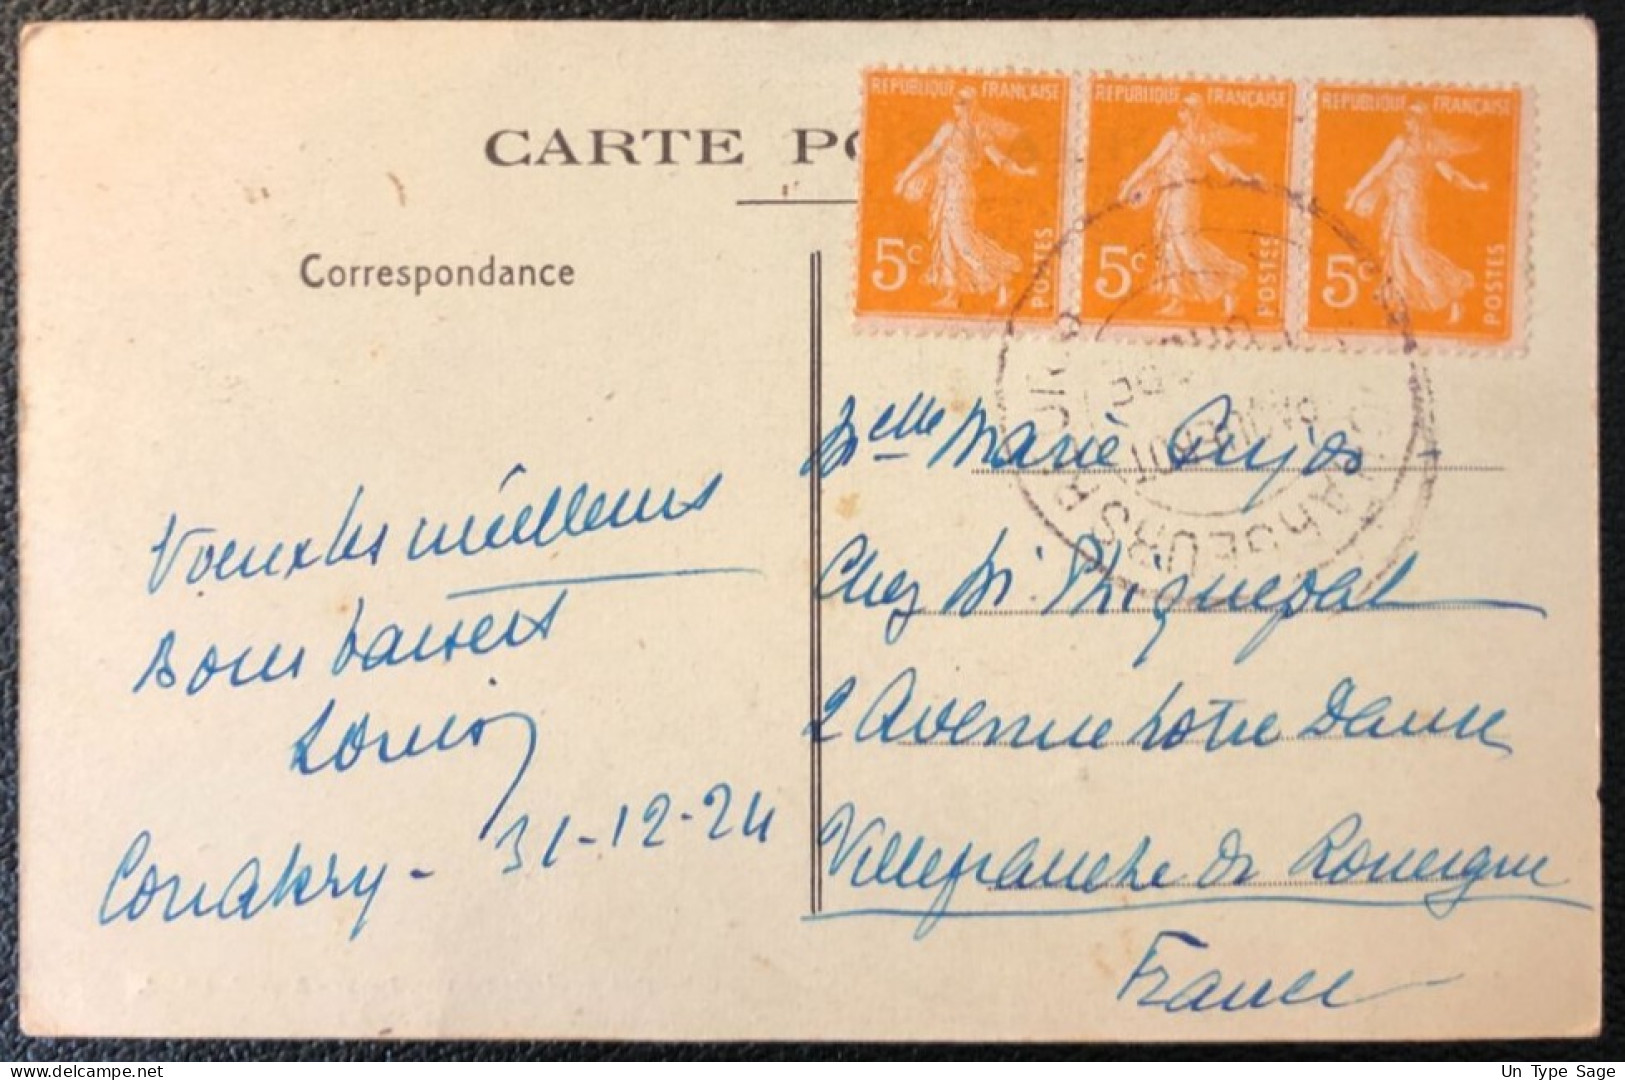 CARTE PO
Correspondance
REPUBLIQUE FRANÇAISE
5c POSTES
REPUBLIQUE FRANÇAISE
5c POSTES
REPUBLIQUE FRANÇAISE
5c POSTES
CHARGEURS R
PAQUEBOT
Voeux les meilleurs
Bons baisers
Louis
Conakry - 31-12-24
Melle Marie Pujos
Chez Mr.
2 Avenue Notre Dame
Villefranche de Rouergue
France
Un Type Sage
delcampe.net